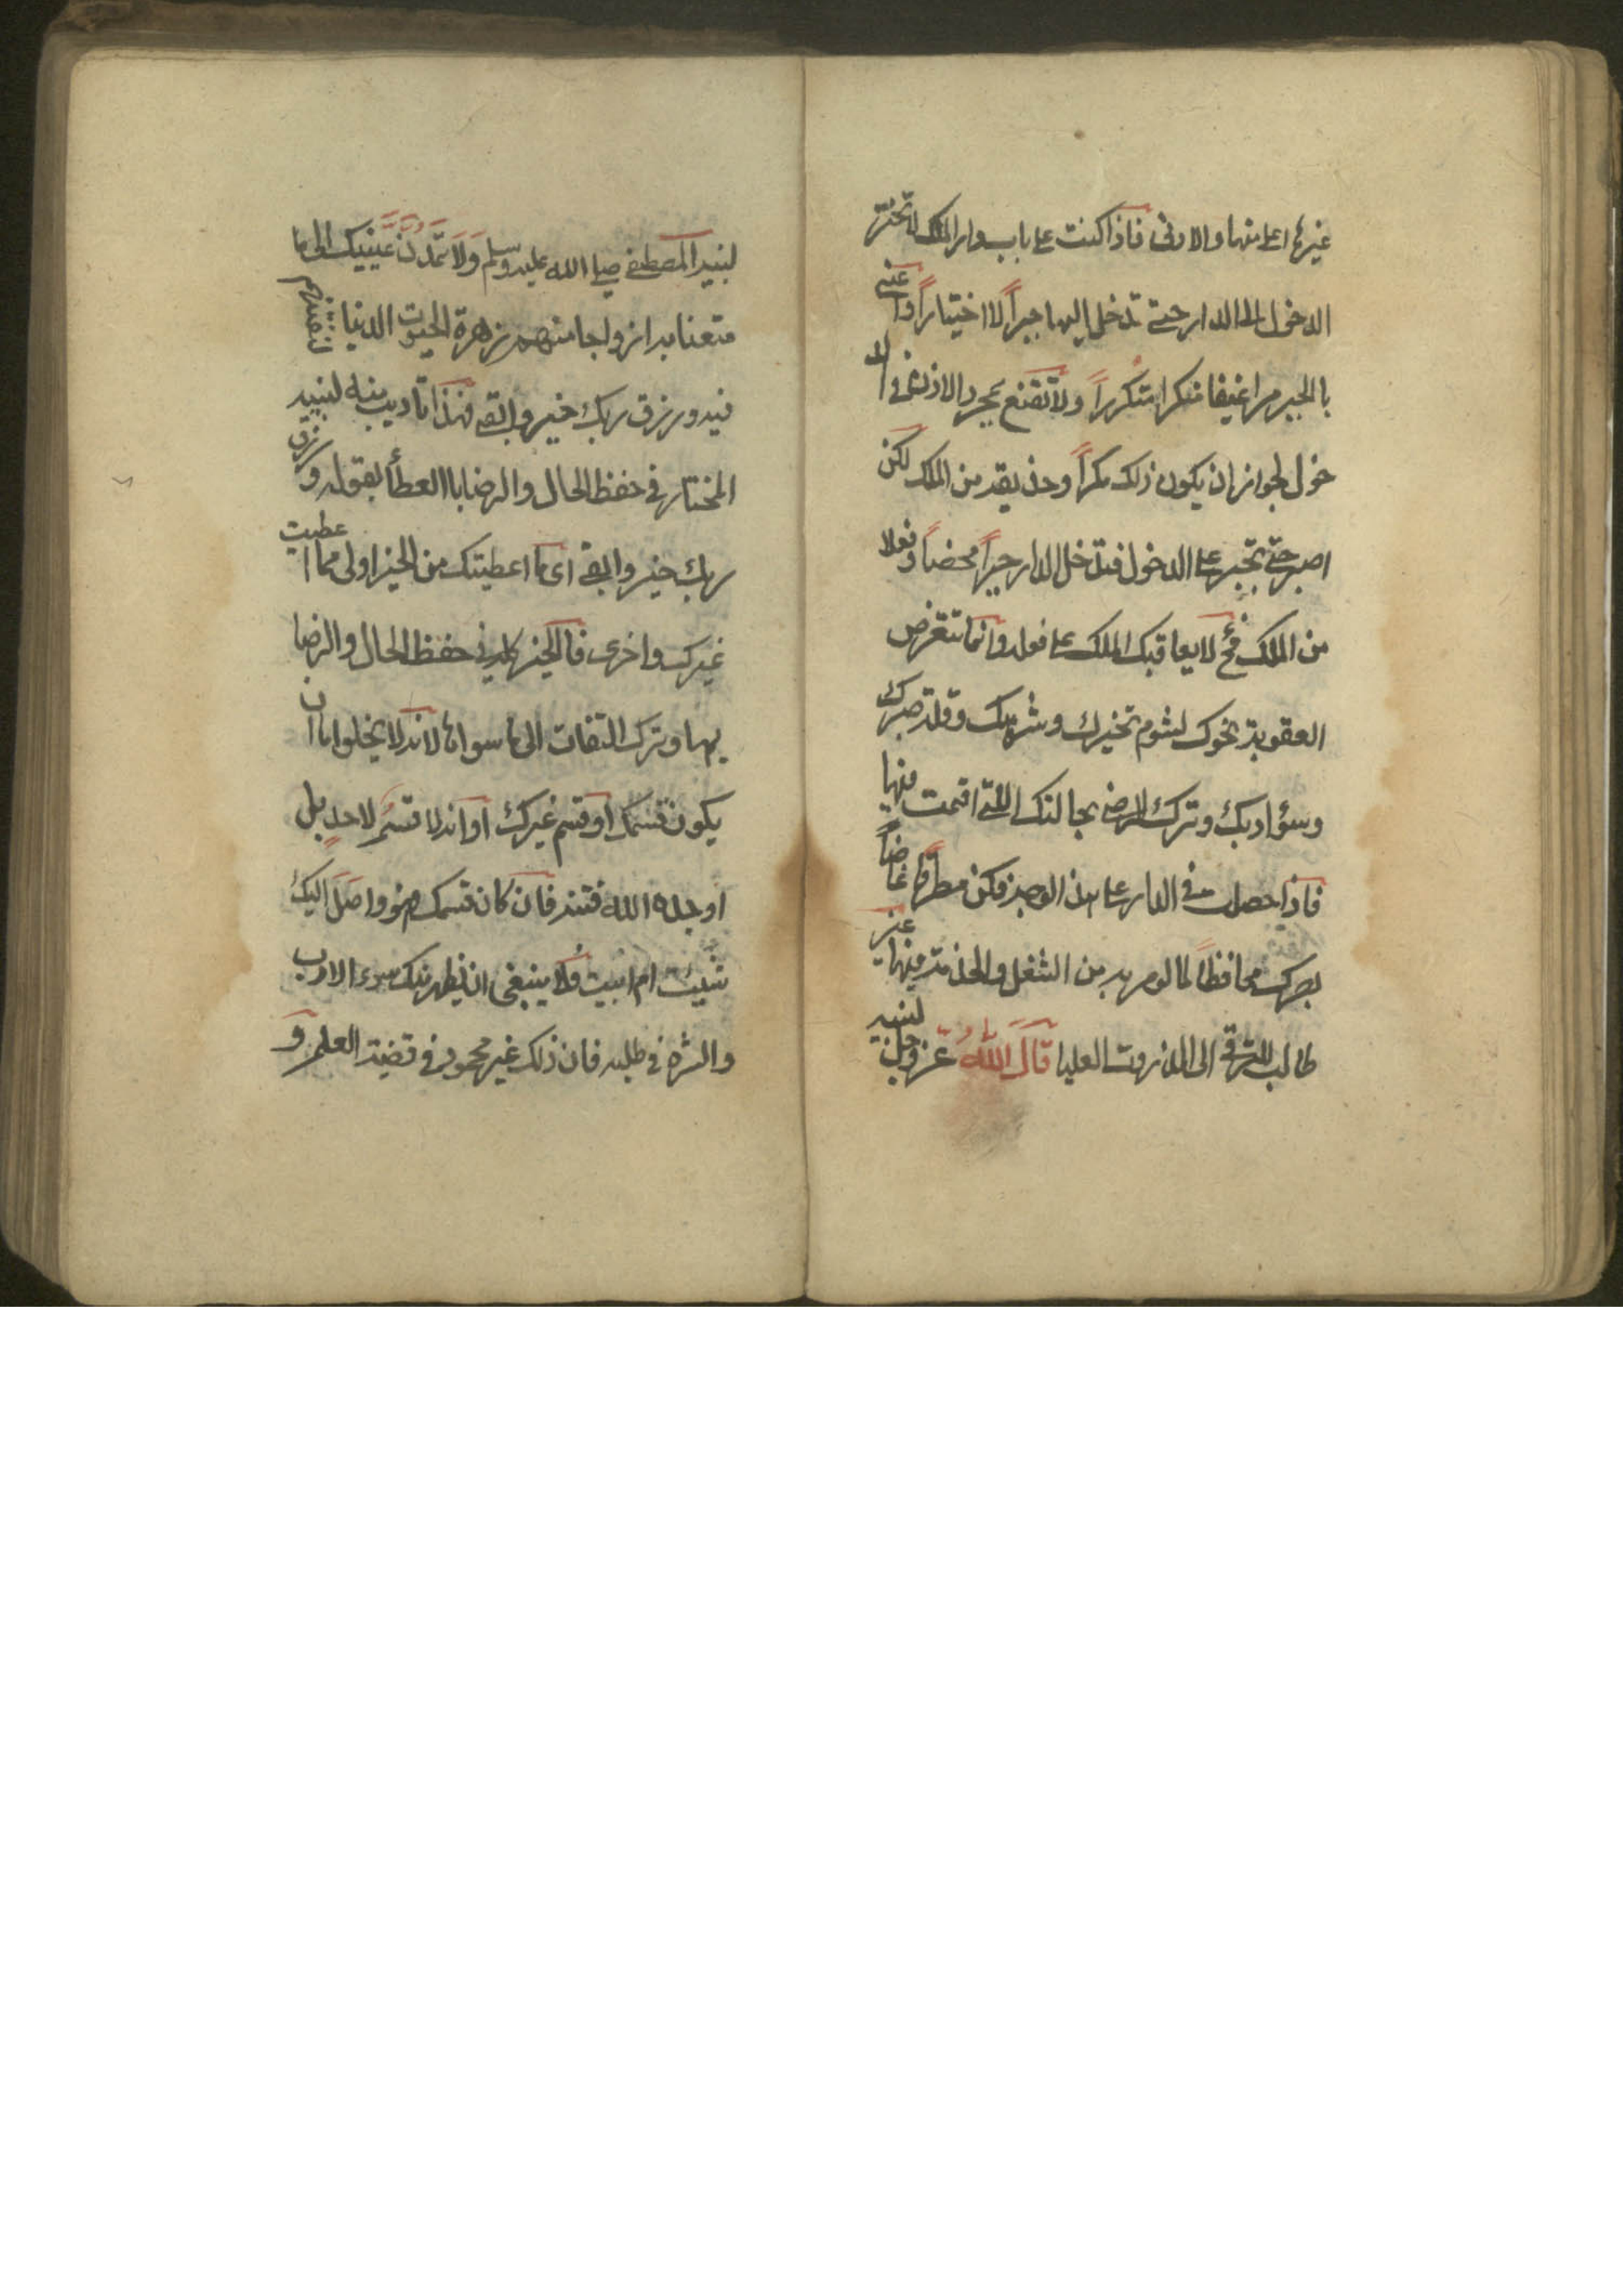 غيرها اعلا منها والادنى فاذا كنت على باب دار الملك لا تختر
الدخول الى الدار حتى تدخل اليها جبراً لا اختياراً واعنى
بالجبر مرا عنيفا متكرا متكرراً ولا تقنع بمجرد الاذن فى الد
خول لجواز ان يكون ذلك مكراً وخديعة من الملك لكن
اصبر حتى تجبر على الدخول فتدخل الدار جبراً محضاً وفعلا
من الملك فح لا يعاقبك الملك على فعله وانما تتعرض
العقوبة نحوك لشوم تخيرك وشرهك وقلة صبرك
وسؤ ادبك وترك الرضى بحالتك اللتى اقمت فيها
فاذا حصلت فى الدار على هذه الوجه فكن مطرقا غاضاً
بصرك محافظاً لما تومر به من الشغل والخدمة فيها غير
طالب للترقى الى الذروت العليا قال الله عز وجل لنبيه
لنبيه المصطفى صلى الله عليه وسلم ولا تمدن عينيك الى ما
متعنا به ازواجا منهم زهرة الحيوت الدنيا لنفتنهم
فيه ورزق ربك خير وابقى فهذا تاديب منه لنبيه
المختار فى حفظ الحال والرضا بالعطأ بقوله ورزق
ربك خير وابقى اى ما اعطيتك من الخير اولى مما اعطيت
غيرك واخرى فالخير كله فى حفظ الحال والرضا
بها وترك التفات الى ما سواها لانه لا يخلوا اما ان
يكون قسمك او قسم غيرك او انه لا قسم لاحد بل
اوجده الله فتنة فان كان قسمك فهو واصل اليك
شيئت ام ابيت فلا ينبغى ان يظهر منك سوء الادب
والشره فى طلبه فان ذلك غير محمود فى قضية العلم و